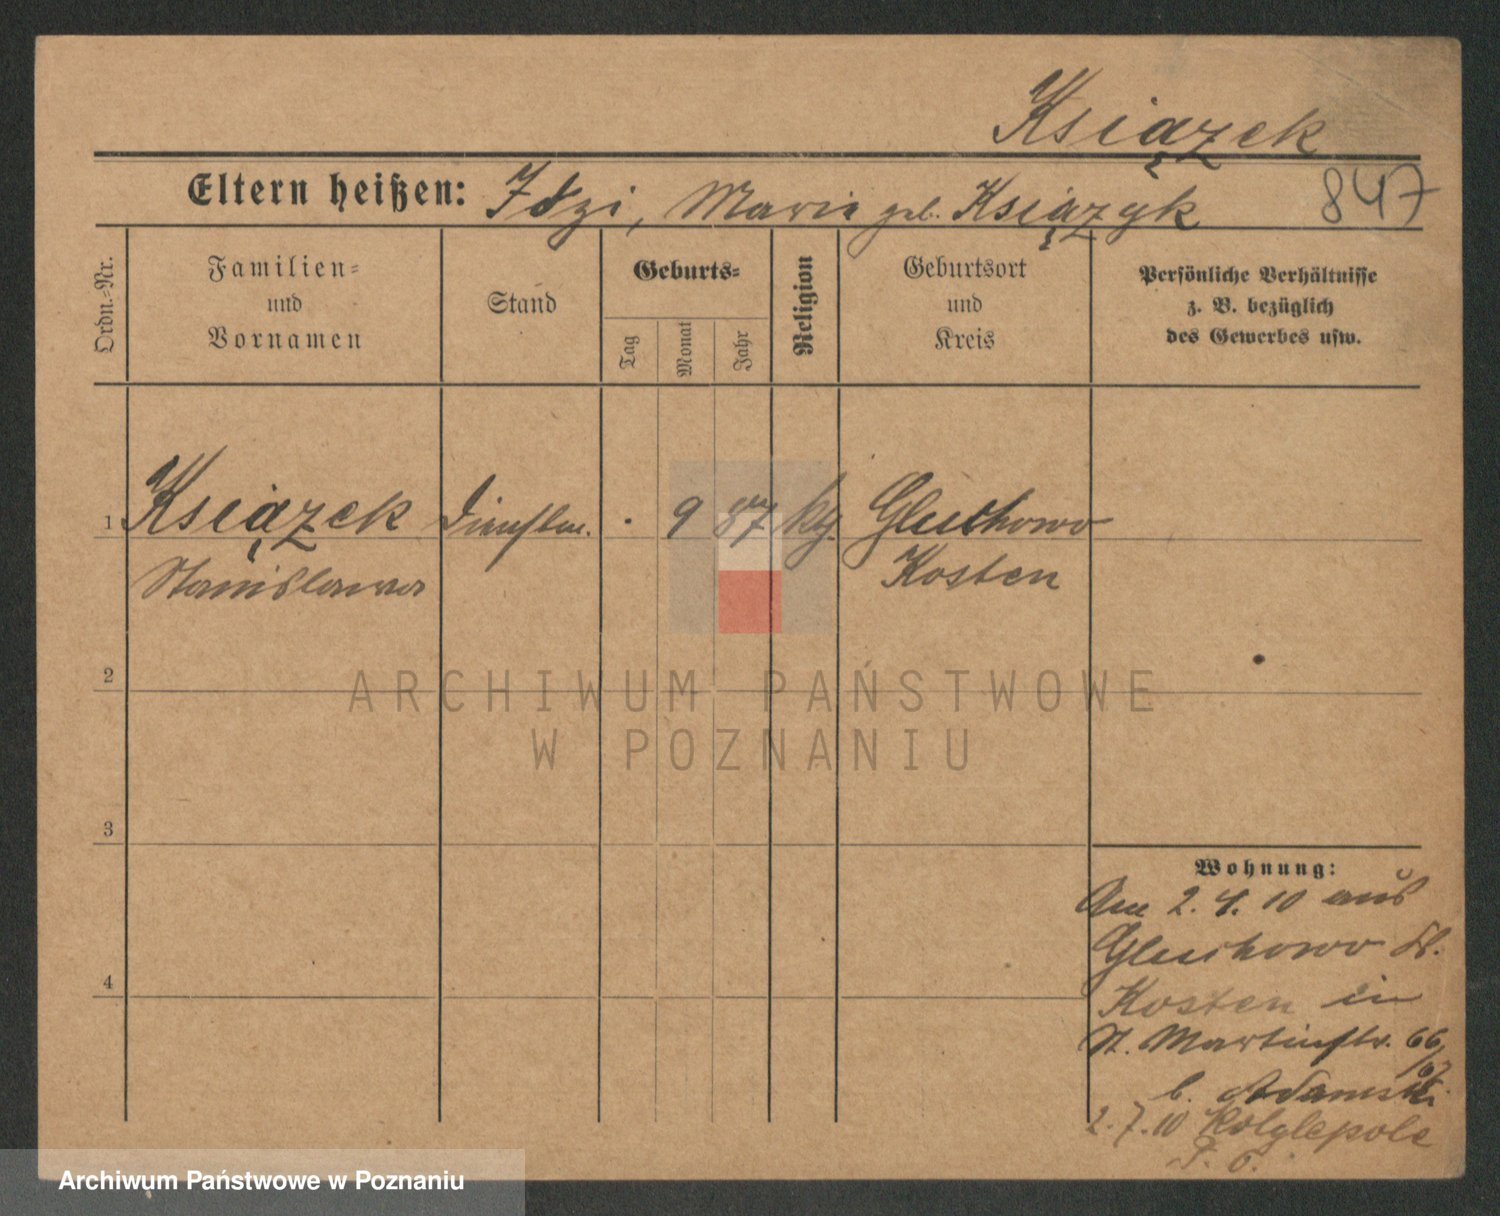 Książek
847
Eltern heißen: Idzi, Marie geb. Książyk
Ordn.-Nr.
Familien-
und
Vornamen
Stand
Geburts-
Tag
Monat
Jahr
Religion
Geburtsort
und
Kreis
Persönliche Verhältnisse
z. B. bezüglich
des Gewerbes usw.
1 Książek Dienstm. . 9 87 kg. Gluchowo
Stanislawa Kosten
2
3
4
Wohnung:
Am 2. 4. 10 aus
Gluchowo
Kosten in
St. Martinstr. 66/67
b. Adamski
2.7.10
ARCHIWUM PAŃSTWOWE
W POZNANIU
Archiwum Państwowe w Poznaniu